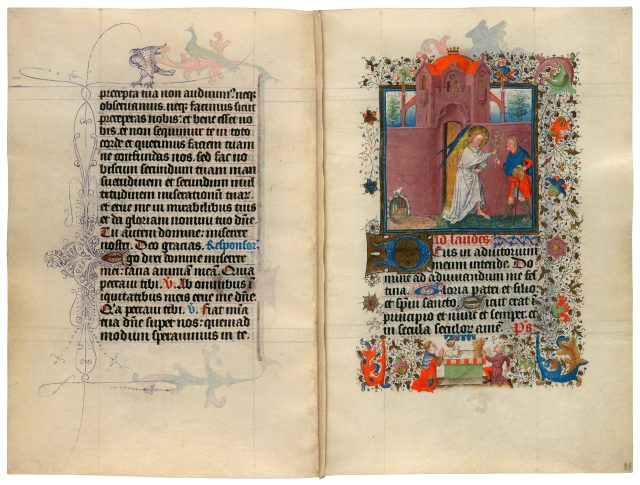 precepta tua non audiuim⁹ neqꝫ
obseruauimus. neqꝫ fecimus sicut
preceperas nobis: et bene esset no
bis. et non sequimur te in toto
corde et querimus faciem tuam
ne confundas nos. sed fac no
biscum secundum tuam man
suetudinem et secundum mul
titudinem miserationū tuar.
et erue me in mirabilibus tuis
et da gloriam nomini tuo dn̄e.
Tu autem domine: miserere
nostri. Deo gracias. Responsor.
Ego dixi domine miserere
mei: sana animā meā. Quia
peccaui tibi. V. Ab omnibus
iniquitatibus meis erue me dn̄e.
Qͥa peccaui tibi. V. Fiat mīa
tua dn̄e super nos: quemad
modum sperauimus in te.
Ad laudes.
Deus in adiutorium
meum intende. Do
mine ad adiuuandum me fes
tina. Gloria patri et filio
et spūi sancto. Sicut erat i
principio et nunc et semper. et
in secula seculoꝝ amē. Ps